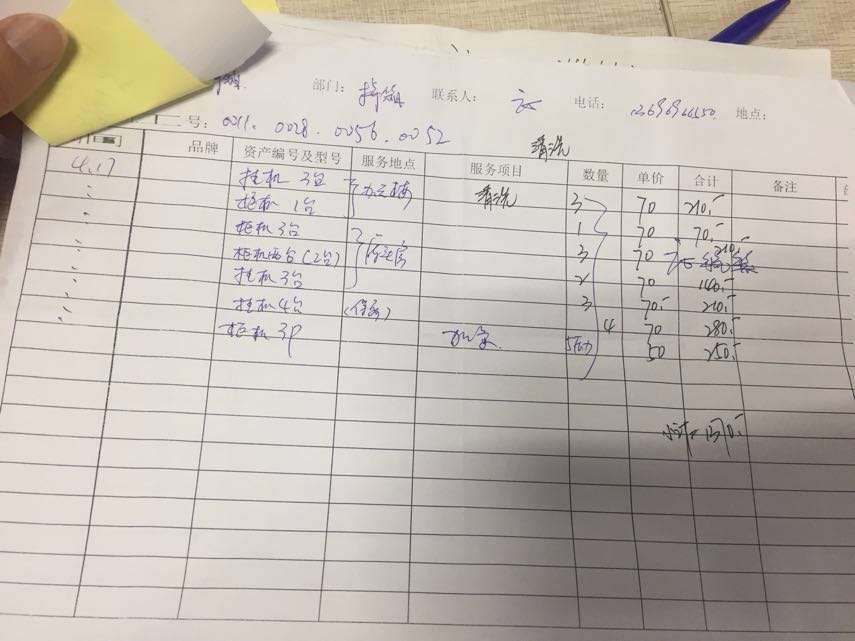 部门： 联系人： 电话： 地点：
号：0011. 0028. 0056. 0052
清洗
品牌 资产编号及型号 服务地点 服务项目 数量 单价 合计 备注
4.17 挂机 3台 办公楼 清洗 3 70 210.-
柜机 1台 1 70 70.-
柜机 3台 3 70 210.-
柜机两台(2台) 2 70 140.-
挂机 3台 3 70.- 210.-
挂机 4台 4 70 280.-
柜机 3P 加氟 50 250.-
小计 1370.-